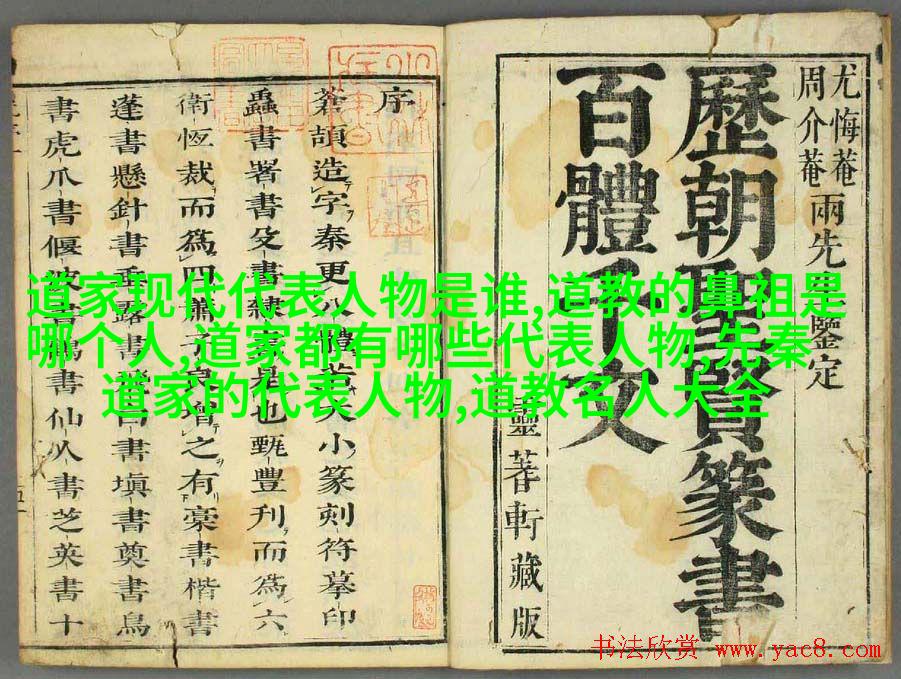 道家现代代表人物是谁,道教的鼻祖是
哪个人,道家都有哪些代表人物,先秦
道家的代表人物,道教名人大全
尤悔菴
周介菴
兩先生鑒定
歷朝聖賢篆書
百體千文
靈蓍軒藏版
序
蒼頡造字秦更八體大小篆刻符摹印
蟲書署書殳書隸書是也甄豐刋而爲六
衛恆裁而爲四蕭子良增之有槀書楷書
蓬書懸針書垂露書飛白書塡書奠書鳥
書虎爪書偃波書鶴書仙人書芝英書十
书法欣赏 www.yac8.com